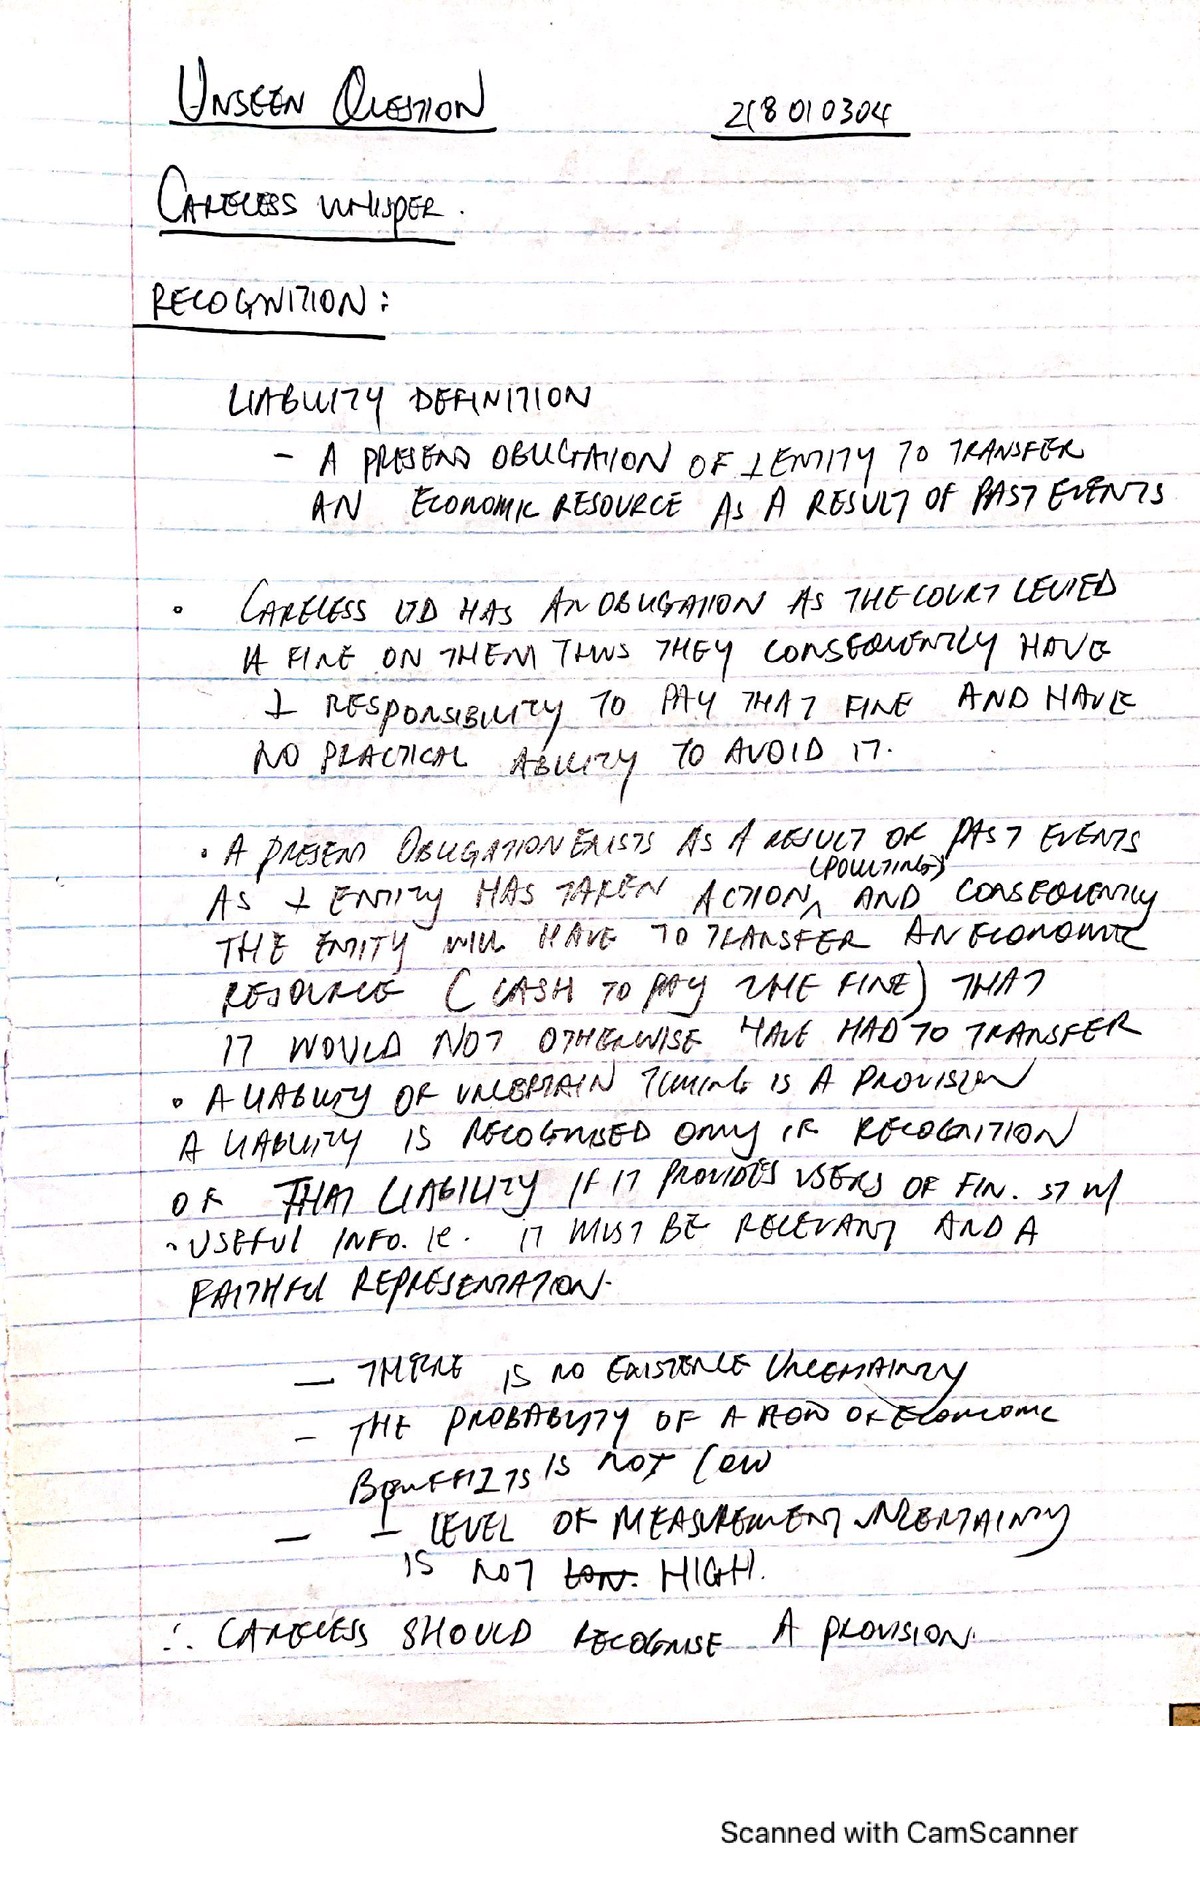 UNSEEN QUESTION
218010304
CARELESS WHISPER.
RECOGNITION:
LIABILITY DEFINITION
- A PRESENT OBLIGATION OF ⊥ ENTITY TO TRANSFER
AN ECONOMIC RESOURCE AS A RESULT OF PAST EVENTS
• CARELESS LTD HAS AN OBLIGATION AS THE COURT LEVIED
A FINE ON THEM THUS THEY CONSEQUENTLY HAVE
⊥ RESPONSIBILITY TO PAY THAT FINE AND HAVE
NO PRACTICAL ABILITY TO AVOID IT.
• A PRESENT OBLIGATION EXISTS AS A RESULT OF PAST EVENTS
(POLLUTING)
AS ⊥ ENTITY HAS TAKEN ACTION ^ AND CONSEQUENTLY
THE ENTITY WILL HAVE TO TRANSFER AN ECONOMIC
RESOURCE (CASH TO PAY THE FINE) THAT
IT WOULD NOT OTHERWISE HAVE HAD TO TRANSFER
• A LIABILITY OF UNCERTAIN TIMING IS A PROVISION
A LIABILITY IS RECOGNISED ONLY IF RECOGNITION
OF THAT LIABILITY IF IT PROVIDES USERS OF FIN. ST W/
• USEFUL INFO. IE. IT MUST BE RELEVANT AND A
FAITHFUL REPRESENTATION.
- THERE IS NO EXISTENCE UNCERTAINTY
- THE PROBABILITY OF A FLOW OF ECONOMIC
BENEFITS IS NOT LOW
- ⊥ LEVEL OF MEASUREMENT UNCERTAINTY
IS NOT LOW. HIGH.
∴ CARELESS SHOULD RECOGNISE A PROVISION.
Scanned with CamScanner